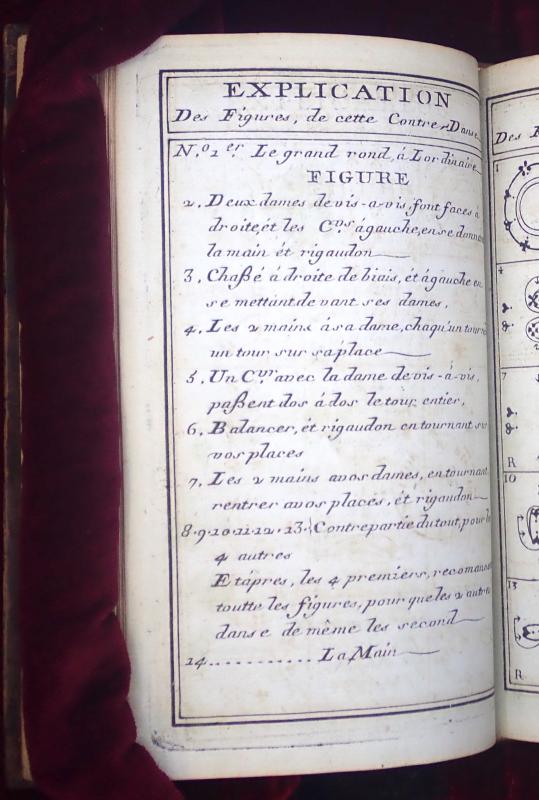 EXPLICATION
Des Figures, de cette Contre-Danse
N.º 1.er Le grand rond, á Lordinaire
FIGURE
2. Deux dames de vis-a-vis, font faces à
droite, ét les C.vrs ágauche, en se donnant
la main ét rigaudon
3. Chaßé á droite de biais, ét ágauche en
se mettant de vant ses dames,
4. Les 2 mains á sa dame, chaqu'un tour
un tour sur sa place
5. Un C.vr avec la dame de vis-á-vis,
paßent dos á dos le tour entier,
6. Balancer, ét rigaudon en tournant sur
vos places
7. Les 2 mains avos dames, en tournant
rentrer avos places, ét rigaudon
8.9.10.11.12.13. Contrepartie du tout, pour les
4 autres
Et ápres, les 4 premiers, recomance
toutte les figures, pour que les 2 autres
danse de même les second
14............ La Main
Des F
1
4
7
R
10
13
R